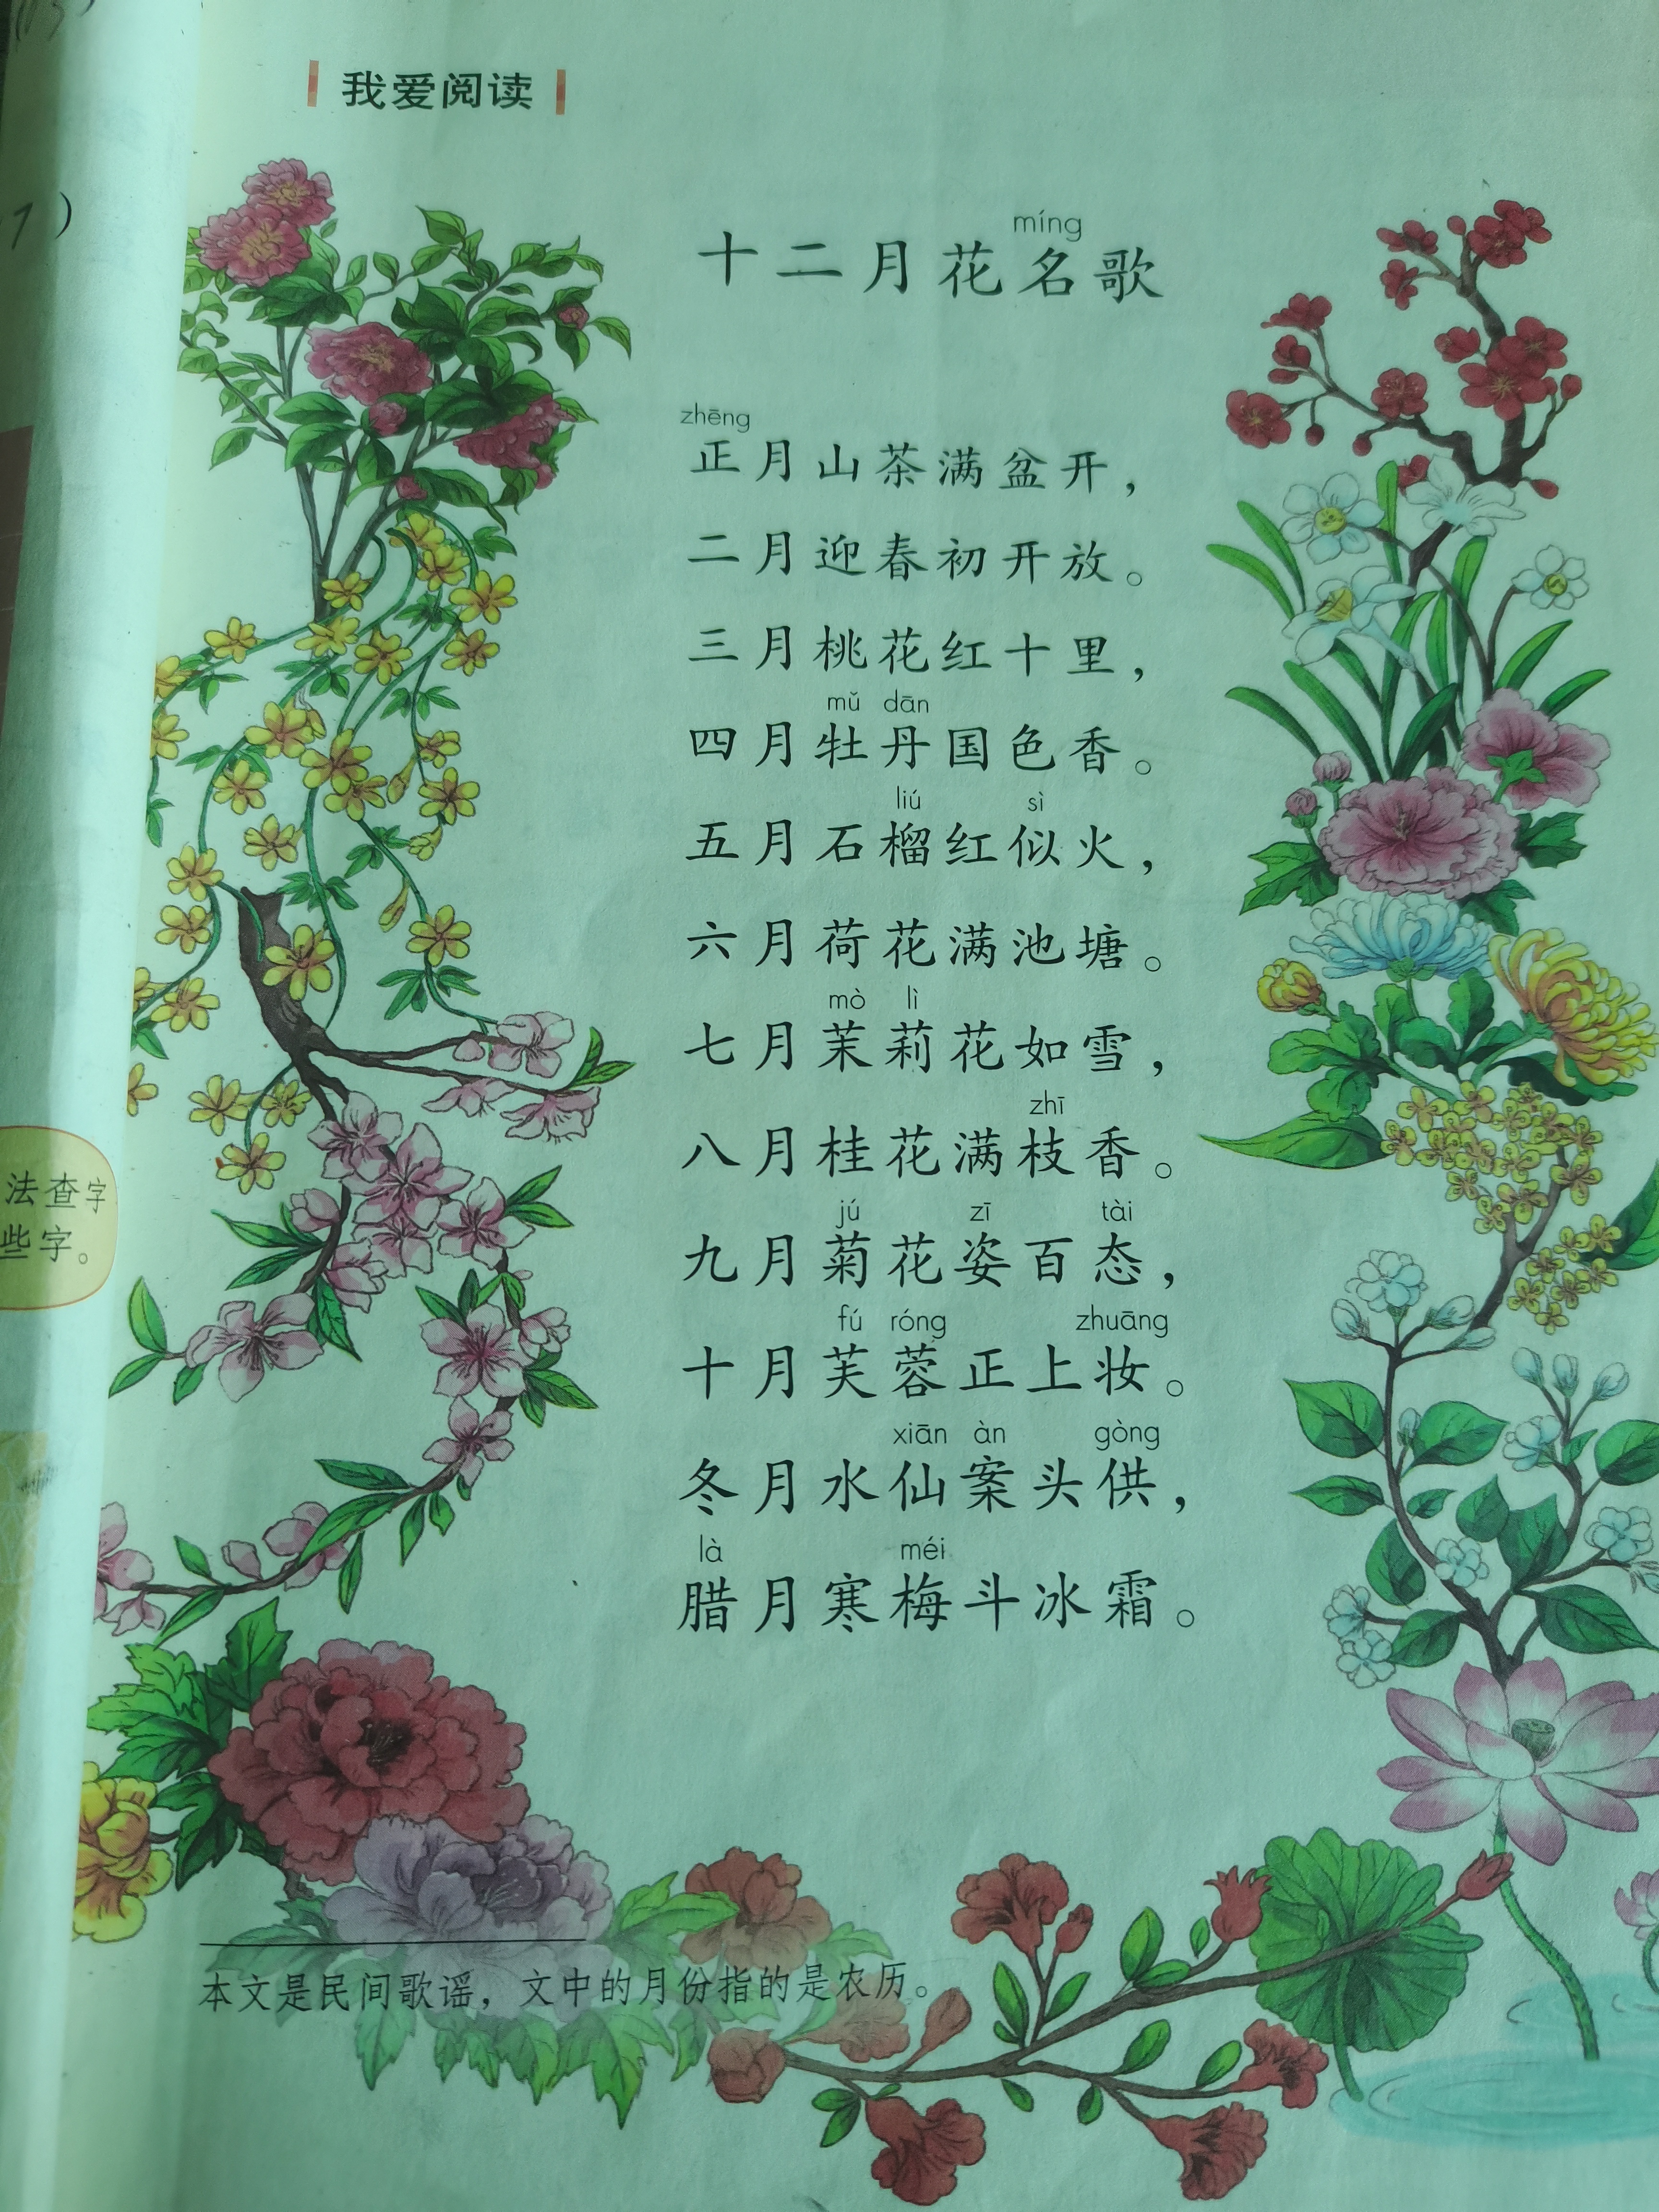 我爱阅读
míng
十二月花名歌
zhēng
正月山茶满盆开，
二月迎春初开放。
三月桃花红十里，
mǔ dān
四月牡丹国色香。
liú sì
五月石榴红似火，
六月荷花满池塘。
mò lì
七月茉莉花如雪，
zhī
八月桂花满枝香。
jú zī tài
九月菊花姿百态，
fú róng zhuāng
十月芙蓉正上妆。
xiān àn gòng
冬月水仙案头供，
là méi
腊月寒梅斗冰霜。
本文是民间歌谣，文中的月份指的是农历。
7）
法查字
些字。